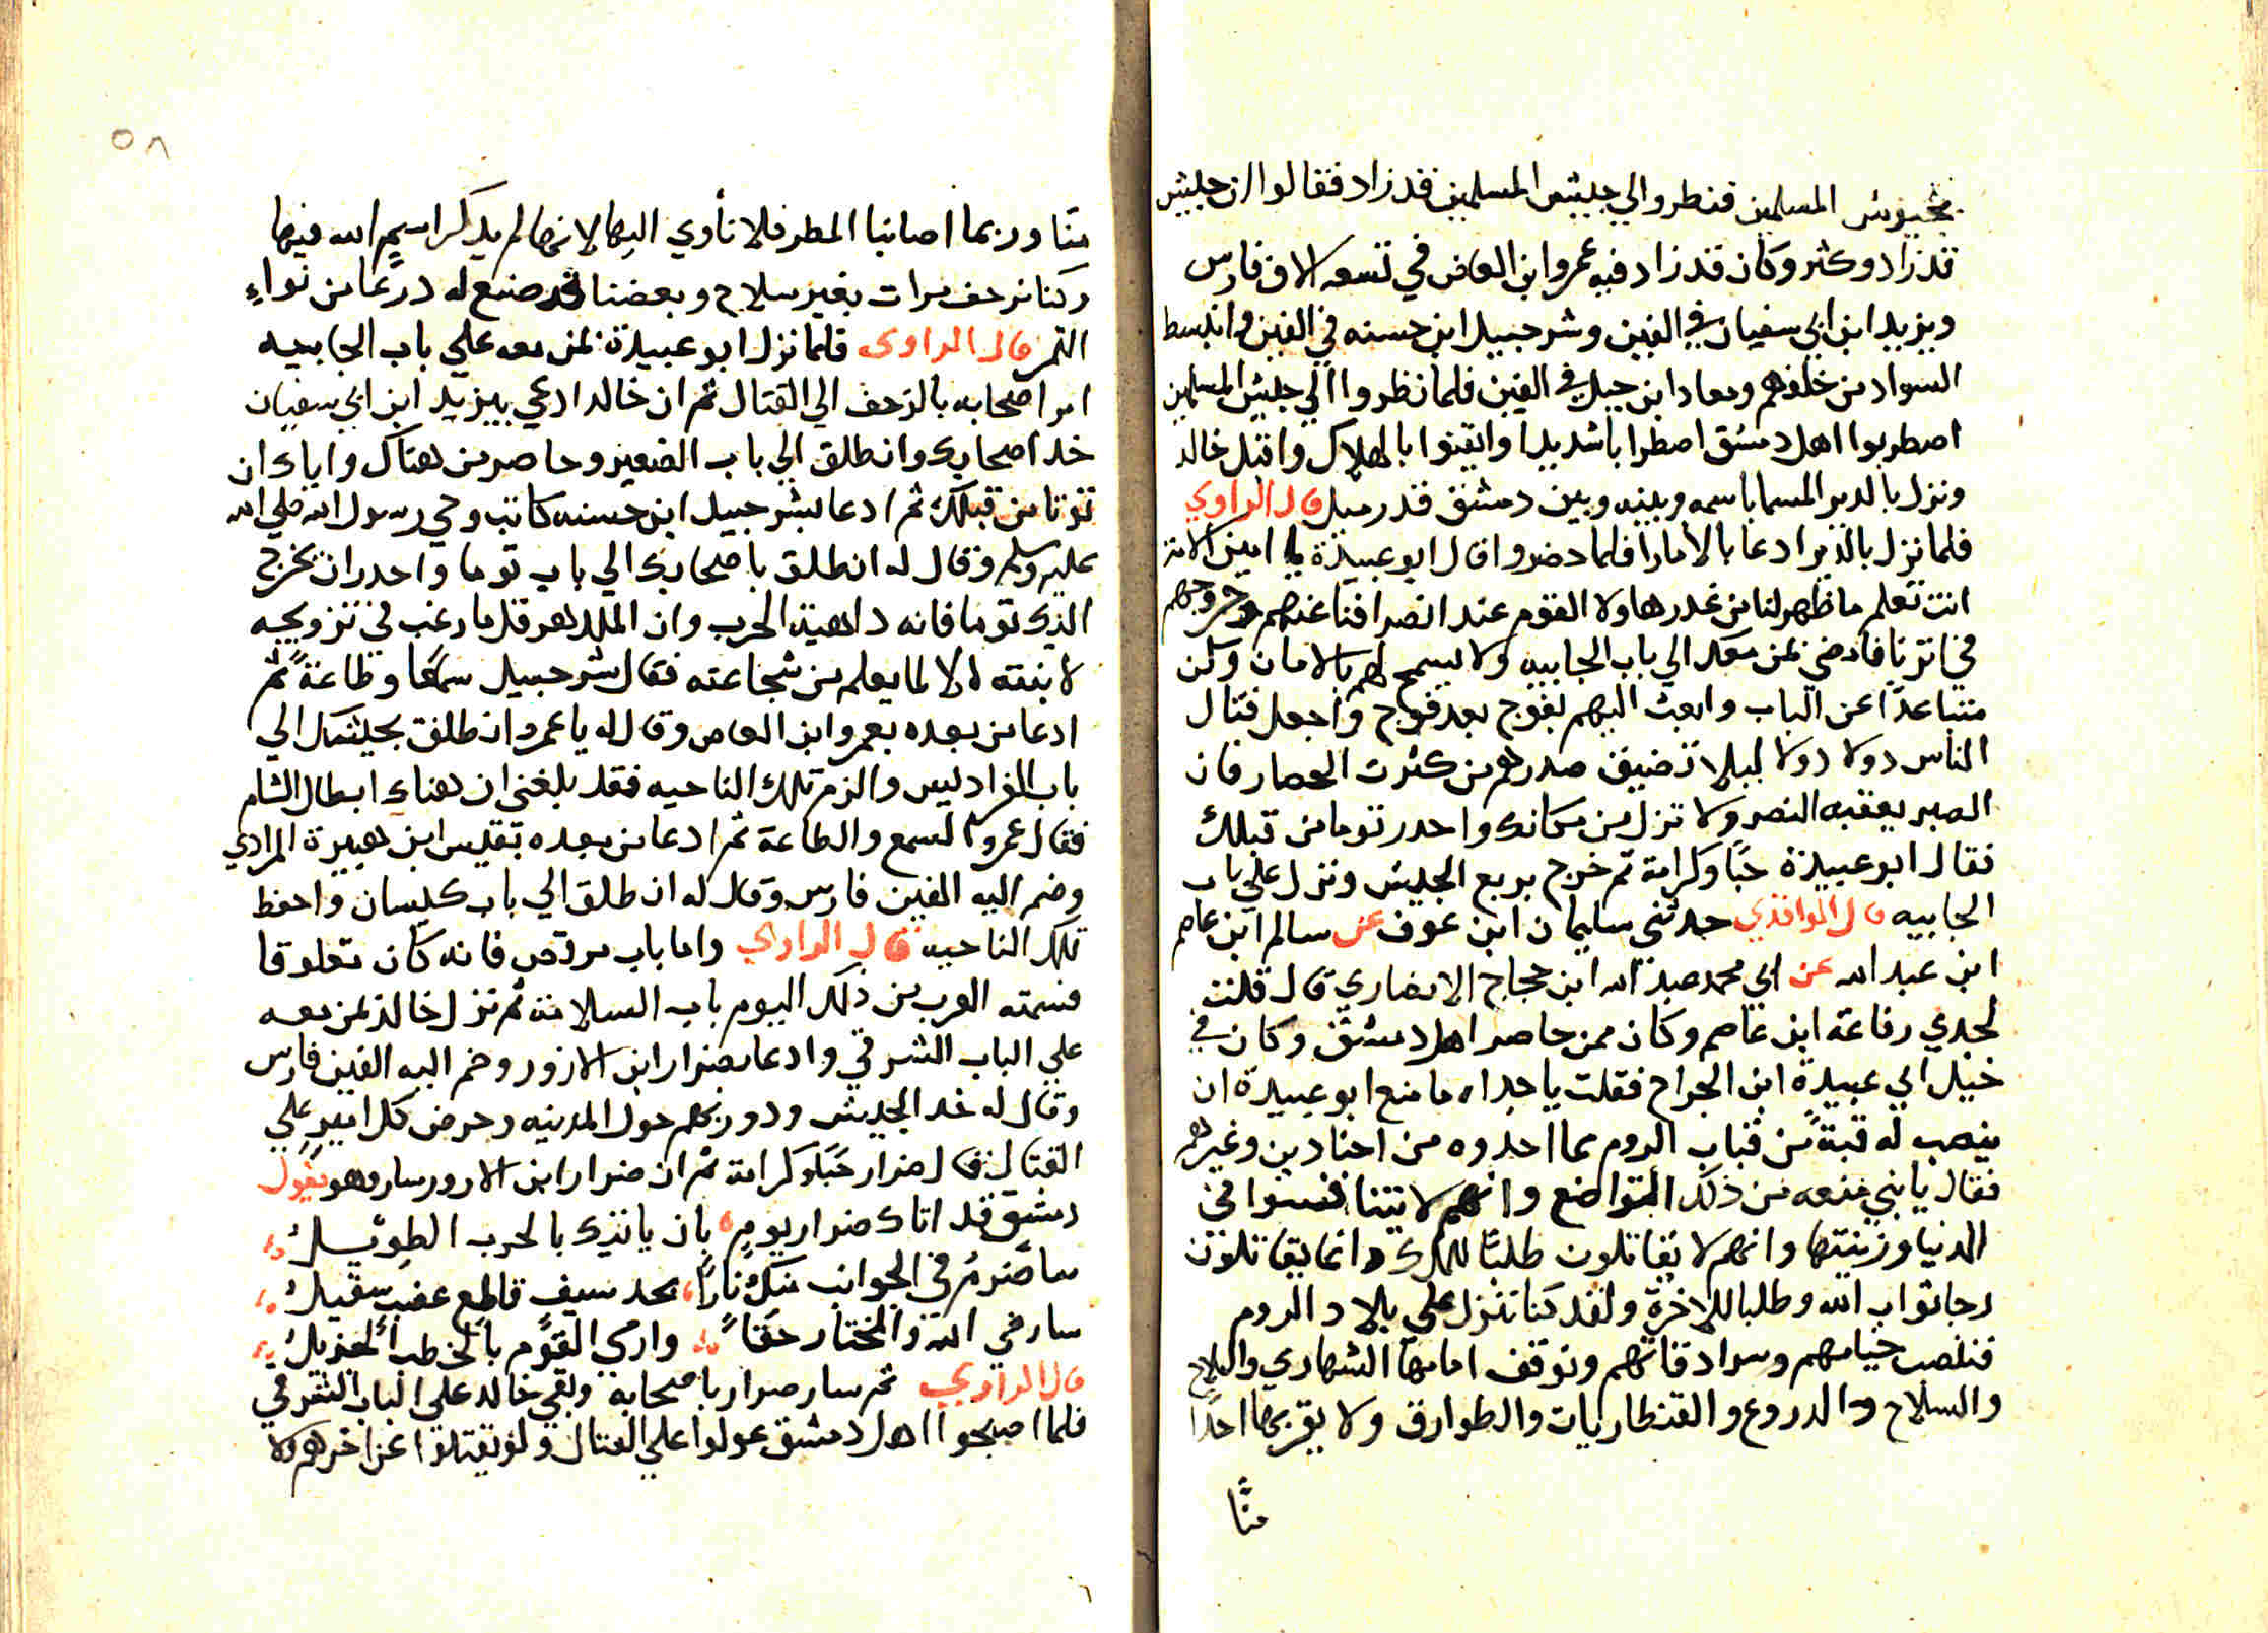 بجيوش المسلمين فنظروا لي جيش المسلمين قد زاد فقالوا ان جيش
قد زاد وكثر وكان قد زاد فيه عمروا ابن العاص في تسعه الاف فارس
ويزيد ابن ابي سفيان في الفين وشرحبيل ابن حسنه في الفين وانبسط
السواد من خلفهم ومعاد ابن جبل في الفين فلما نظروا الي جيش المسلمين
اصطربوا اهل دمشق اصطرابا شديدا وايقنوا بالهلاك واقبل خالد
ونزل بالدير المسما باسمه وبينه وبين دمشق قدر ميل قال الراوي
فلما نزل بالدير ادعا بالأمارا فلما حضروا قال ابو عبيدة يا امين الامة
انت تعلم ما ظهر لنا من غدرها ولا القوم عند انصرافنا عنهم وخروجهم
في اثرنا فامضي بمن معك الي باب الجابيه ولا يسمح لهم بالامان وكن
متباعدًا عن الباب وابعث اليهم بفوج بعد فوج واجعل قتال
الناس دولا دولا ليلا تضيق صدرهم من كثرت الحصار فان
الصبر يعقبه النصر ولا تزل من مكانك واحدر توما من قبلك
فقال ابو عبيدة حبًا وكرامة ثم خرج بربع الجيش ونزل علي باب
الجابيه قال الواقدي حدثني سليمان ابن عوف عن سالم ابن عاصم
ابن عبد الله عن ابي محمد عبد الله ابن حجاج الانصاري قال قلت
لجدي رفاعة ابن عاصم وكان ممن حاصر اهل دمشق وكان في
خيل ابي عبيدة ابن الجراح فقلت يا جداه ما منع ابو عبيدة ان
ينصب له قبةً من قباب الروم مما اخدوه من اجنادين وغيرهم
فقال يابني منعه من ذلك التواضع وانهم لا يتنافسوا في
الدنيا وزينتها وانهم لا يقاتلون طلبًا للملك وانما يقاتلون
رجا ثواب الله وطلبا للاخرة ولقد كنا ننزل علي بلاد الروم
فننصب خيامهم وسرادقاتهم ونوقف امامها الشهاري
والسلاح والدروع والقنطاريات والطوارق ولا يقربها احدًا
منًا
٥٨
منا وربما اصابنا المطر فلا نأوي اليها لانها لم يدكر اسم الله فيها
وكنا نرحف مرات بغير سلاح وبعضنا قد صنع له درعا من نواءِ
التمر قال الراوي فلما نزل ابو عبيدة بمن معه علي باب الجابيه
امر اصحابه بالزحف الي القتال ثم ان خالد ادعي بيزيد ابن ابي سفيان
خد اصحابك وانطلق الي باب الصغير وحاصر من هناك واياك ان
توتا من قبلك ثم ادعا بشرحبيل ابن حسنه كاتب وحي رسول الله صلي الله
عليه وسلم وقال له انطلق باصحابك الي باب توما واحدر ان يخرج
الذي توما فانه داهية الحرب وان الملك هرقل ما رغب في تزويجه
لابنته الا لما يعلم من شجاعته فقال شرحبيل سمعًا وطاعةً ثم
ادعا من بعده بعمروا ابن العاص وقال له يا عمروا انطلق بجيشك الي
باب الفراديس والزم تلك الناحيه فقد بلغني ان هناك ابطال الشام
فقال عمروا لسمع والطاعة ثم ادعا من بعده بقيس ابن هبيرة المرادي
وضم اليه الفين فارس وقال له انطلق الي باب كيسان واحفظ
تلك الناحيه قال الراوي واما باب مرقص فانه كان مغلوقا
فسمته العرب من ذلك اليوم باب السلامة ثم نزل خالد بمن معه
علي الباب الشرقي وادعا بضرار ابن الازور وضم اليه الفين فارس
وقال له خد الجيش ودور بكم حول المدينه وحرض كل امير علي
القتال قال ضرار حبًا وكرامة ثم ان ضرار ابن الازور سار وهو يقول
دمشق قد اتاك ضرار يوم بان ياتيك بالحرب الطويلُ
ساضرم في الجوانب منك نارًا بحد سيف قاطع عضب سقيلُ
سارضي الله والمختار حقًا وارمي القوم بالخطب الجزيلُ
قال الراوي ثم سار ضرار باصحابه وبقي خالد علي الباب الشرقي
فلما اصبحوا اهل دمشق عولوا علي القتال ولو يقتلوا عن اخرهم ولا